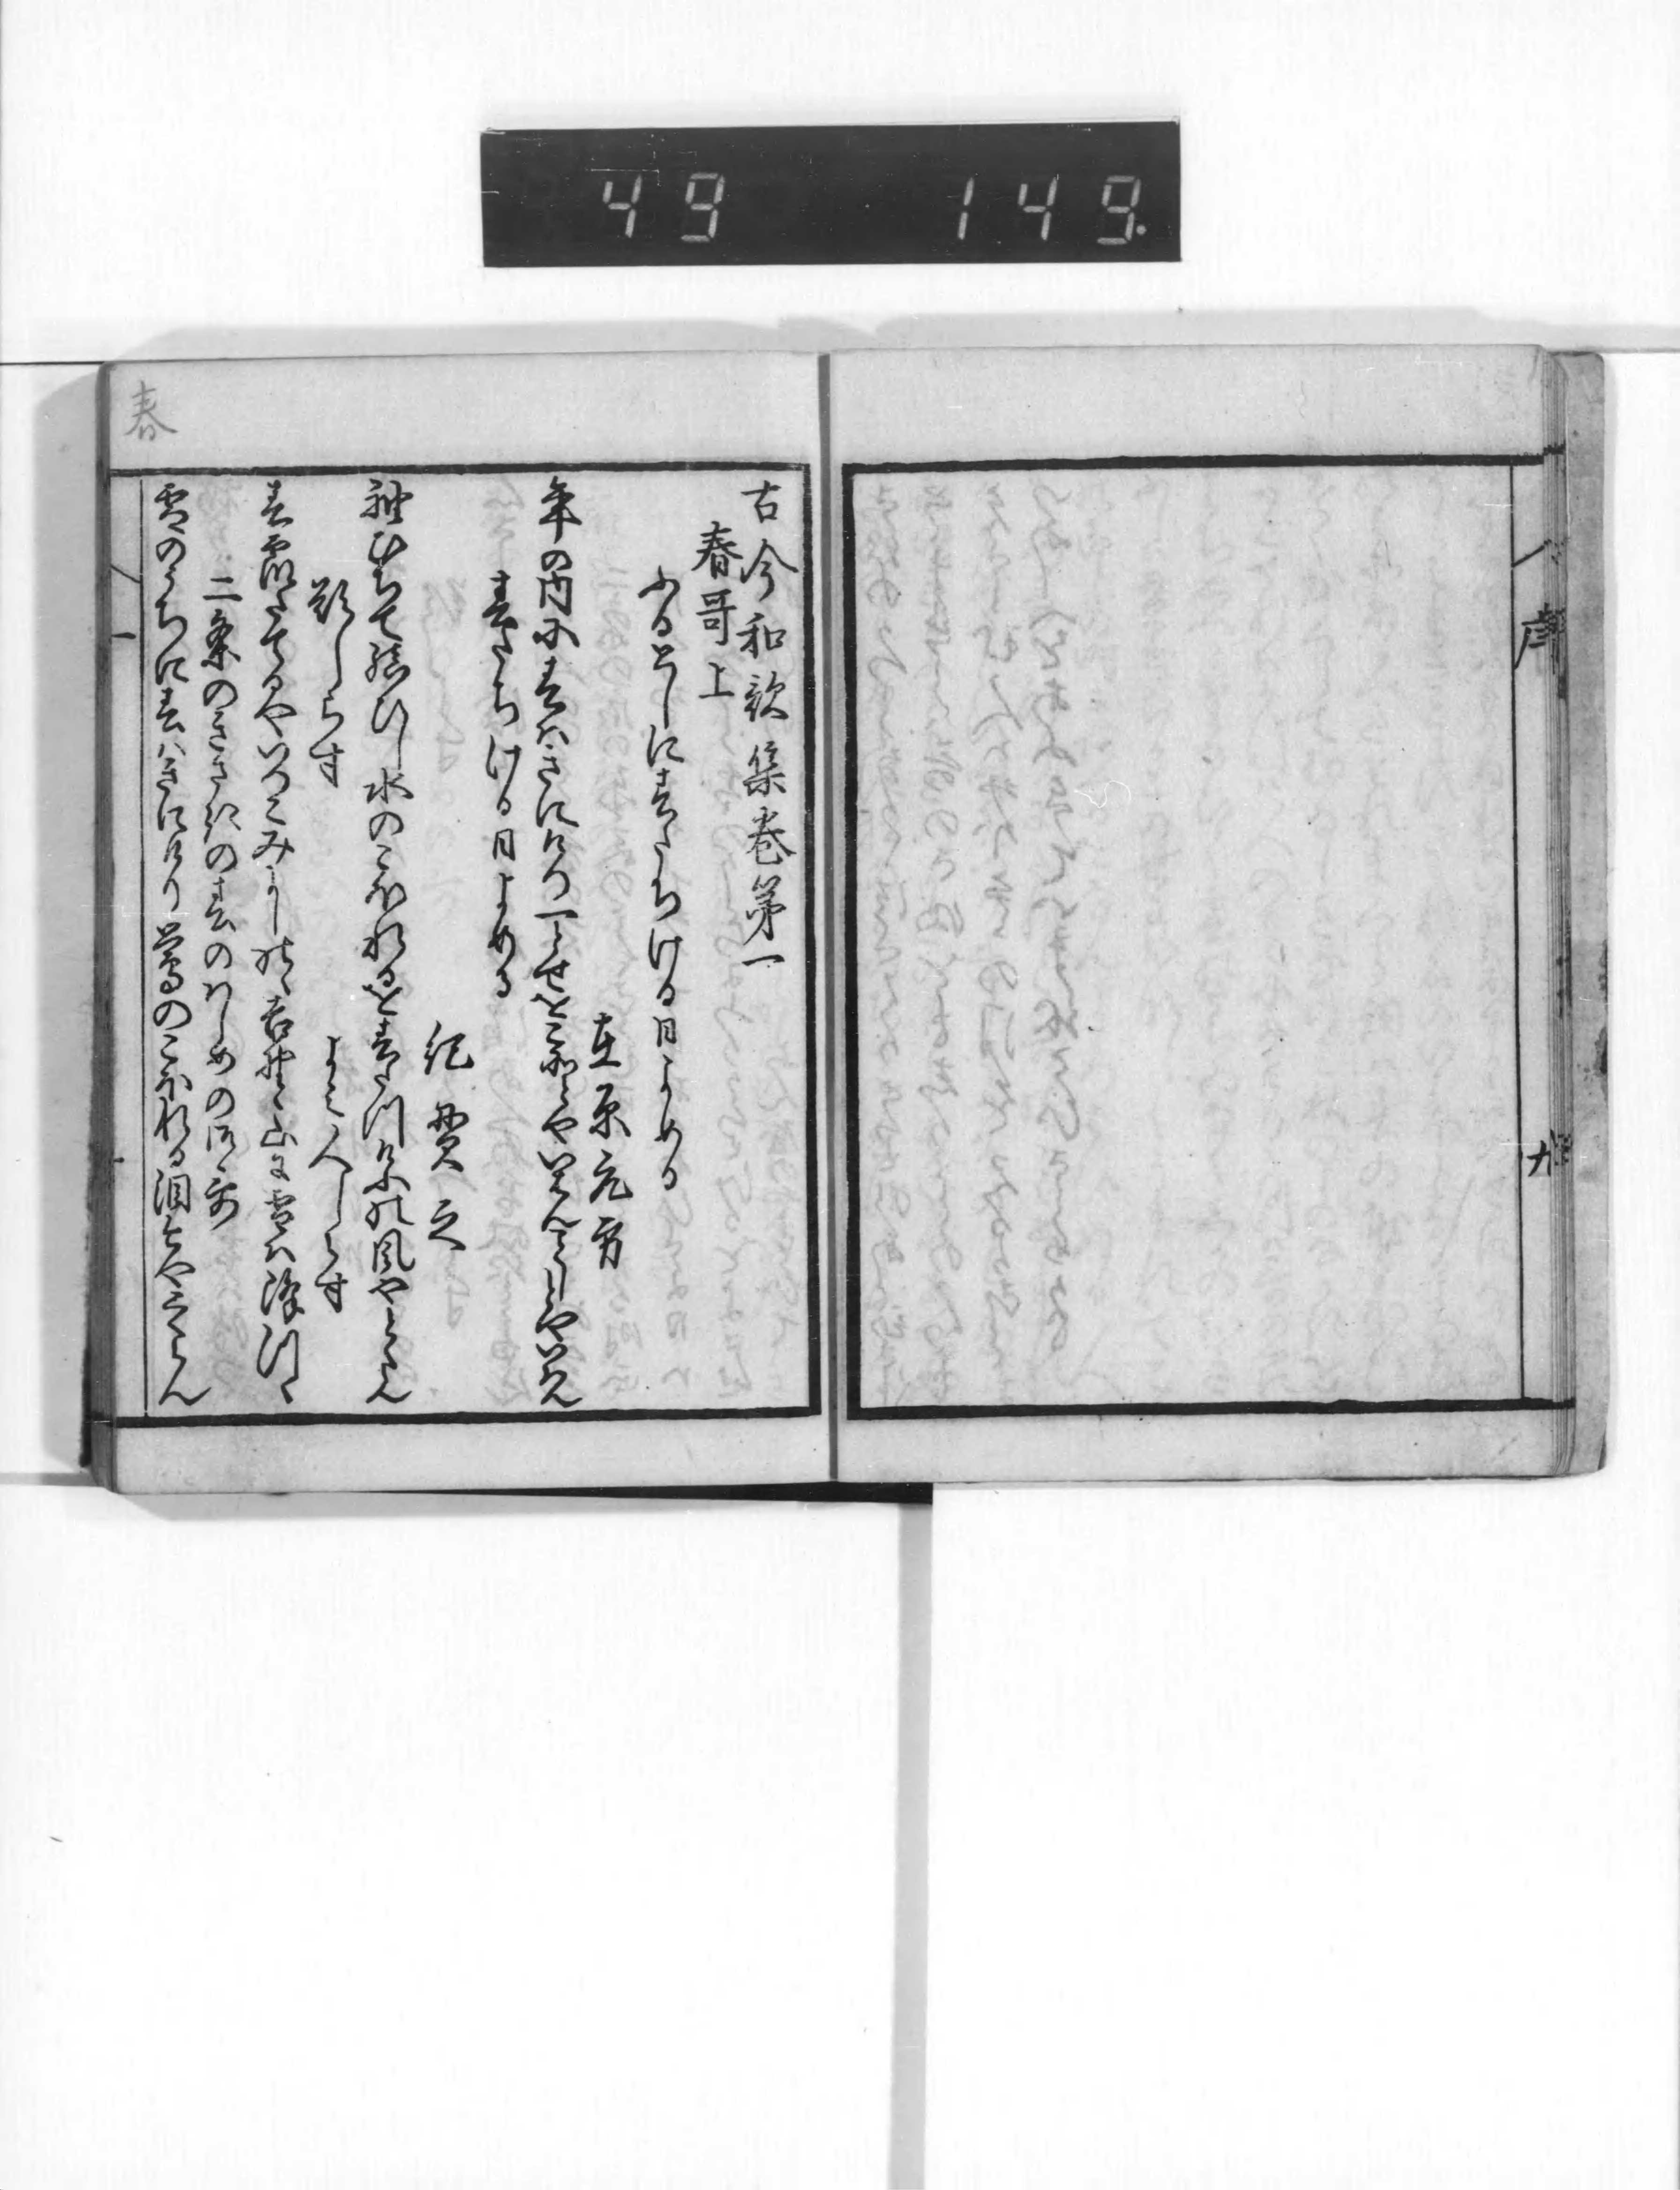 49 149.
春
古今和歌集巻第一
春哥上
ふるとしに春たちける日よめる
在原元方
年の内に春はきにけり一とせをこそとやいはんことしとやいはん
春たちける日よめる
紀貫之
袖ひちて結ひし水のこほれるを春たつけふの風やとくらん
題しらす
よみ人しらす
春霞たてるやいつこみよしのゝ吉野ゝ山に雪は降つゝ
二条のきさきの春のはしめの御哥
雪のうちに春はきにけり鶯のこほれる泪今やとくらん
一